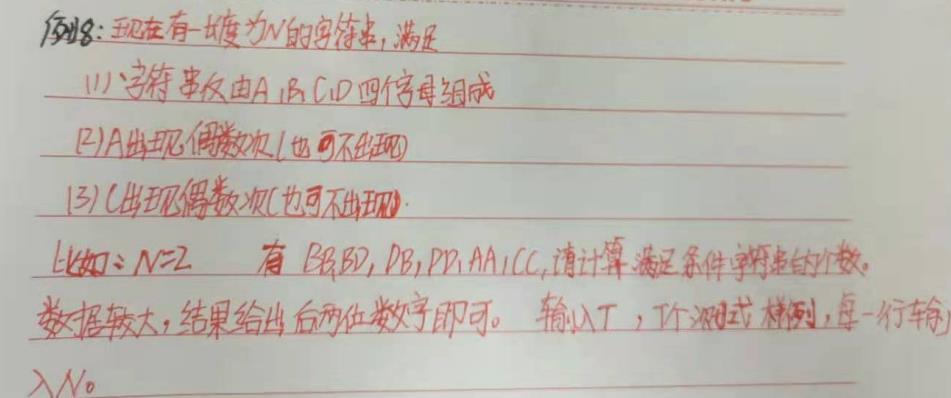 例8:现在有一长度为N的字符串,满足
(1)、字符串仅由A,B,C,D四个字母组成
(2)A出现偶数次(也可不出现)
(3)C出现偶数次(也可不出现).
比如:N=2 有 BB,BD,DB,DD,AA,CC,请计算满足条件字符串的个数。
数据较大,结果给出后两位数字即可。 输入T,T个测试样例,每一行输
入N。